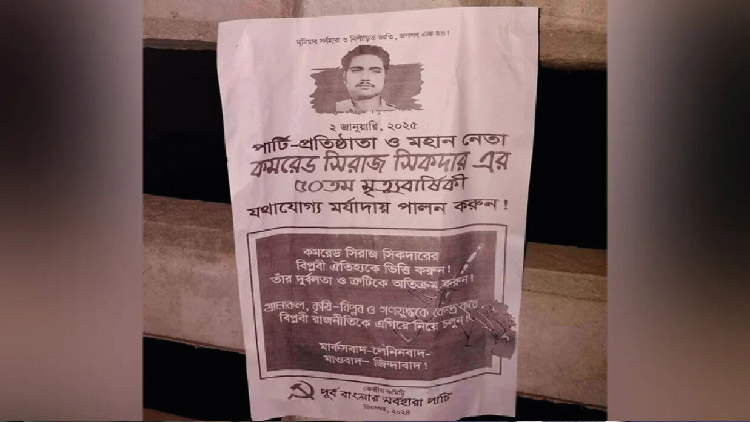 দুনিয়ার সর্বহারা ও নিপীড়িত জাতি, জনগণ এক হও!
২ জানুয়ারি, ২০২৫
পার্টি-প্রতিষ্ঠাতা ও মহান নেতা
কমরেড সিরাজ সিকদার এর
৫০তম মৃত্যুবার্ষিকী
যথাযোগ্য মর্যাদায় পালন করুন!
কমরেড সিরাজ সিকদারের
বিপ্লবী ঐতিহ্যকে ভিত্তি করুন!
তাঁর দুর্বলতা ও ত্রুটিকে অতিক্রম করুন!
গ্রামাঞ্চল, কৃষি-বিপ্লব ও গণযুদ্ধকে কেন্দ্র করে
বিপ্লবী রাজনীতিকে এগিয়ে নিয়ে চলুন!
মার্কসবাদ-লেনিনবাদ-
মাওবাদ- জিন্দাবাদ!
কেন্দ্রীয় কমিটি
পূর্ব বাংলার সর্বহারা পার্টি
ডিসেম্বর, ২০২৪